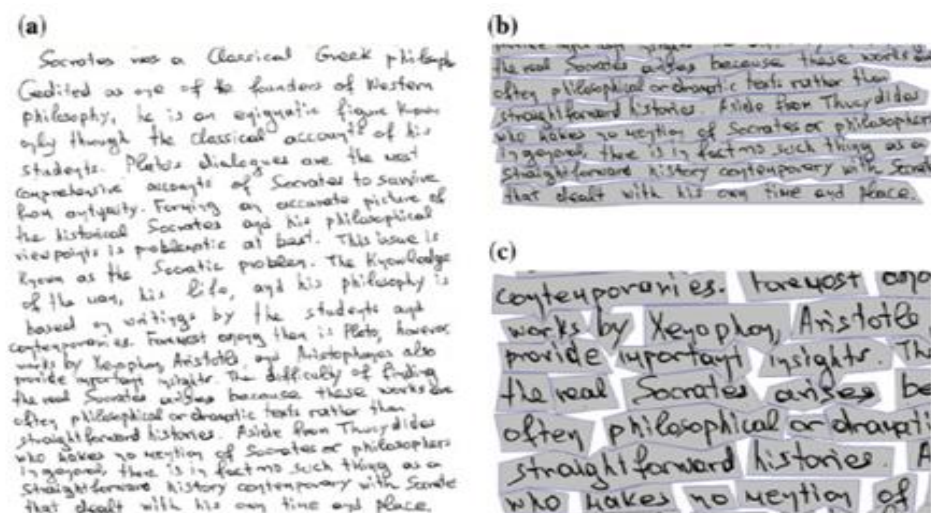 (a)
Socrates was a Classical Greek philosoph
Credited as one of the founders of Western
philosophy, he is an enigmatic figure known
only through the classical accounts of his
students. Plato's dialogues are the most
comprehensive accounts of Socrates to survive
from antiquity. Forming an accurate picture of
the historical Socrates and his philosophical
viewpoints is problematic at best. This issue is
known as the Socratic problem. The knowledge
of the man, his life, and his philosophy is
based on writings by the students and
contemporaries. Foremost among them is Plato, however
works by Xenophon, Aristotle, and Aristophanes also
provide important insights. The difficulty of finding
the real Socrates arises because these works are
often philosophical or dramatic texts rather than
straightforward histories. Aside from Thucydides
who makes no mention of Socrates or philosophers
in general, there is in fact no such thing as a
straightforward history contemporary with Socrate
that dealt with his own time and place.
(b)
the real Socrates arises because these works are
often philosophical or dramatic texts rather than
straightforward histories. Aside from Thucydides
who makes no mention of Socrates or philosophers
in general, there is in fact no such thing as a
straightforward history contemporary with Socrate
that dealt with his own time and place.
(c)
contemporaries. Foremost amon
works by Xenophon, Aristotle,
provide important insights. The
the real Socrates arises be
often philosophical or dramati
straightforward histories. A
who makes no mention of